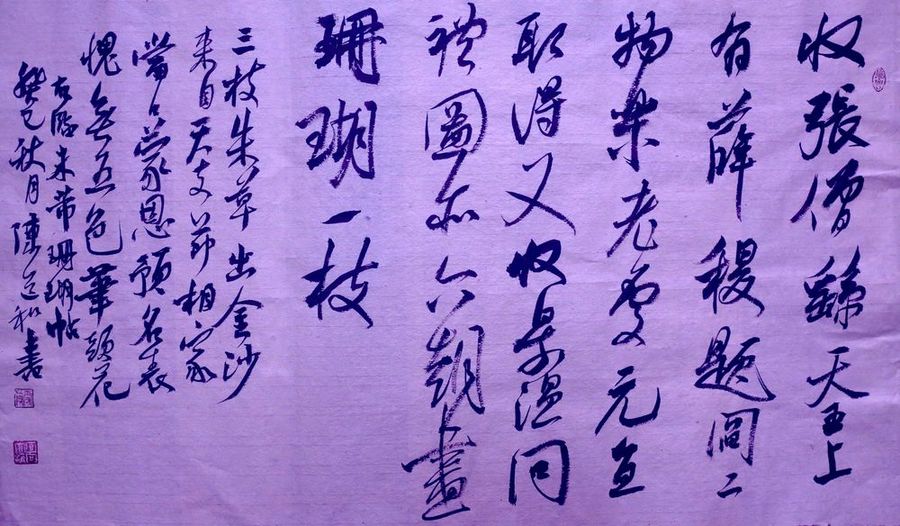 收張僧繇天王上
有薛稷題閻二
物樂老處元直
取得又收景温問
禮圖亦六朝畫
珊瑚一枝
三枝朱草出金沙
来自天支節相家
當日蒙恩預名表
愧無五色筆頭花
右臨米芾珊瑚帖
癸巳秋月陳和書